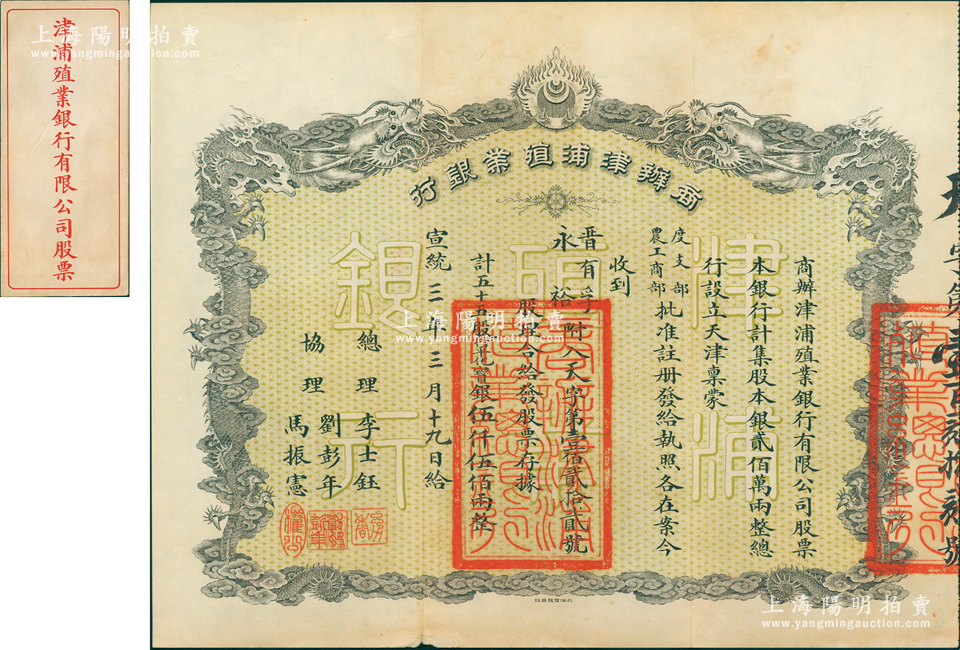 津浦殖業銀行有限公司股票
上海陽明拍賣
www.yangmingauction.com
商辦津浦殖業銀行
津浦
殖業
銀行
商辦津浦殖業銀行有限公司股票
本銀行計集股本銀貳佰萬兩整總
行設立天津稟蒙
度支部
農工商部批准註册發給執照各在案今
收到
晋有孚
永裕
附入天字第壹佰貳拾貳號
股理合給發股票存據
計五十五股
銀伍仟伍佰兩整
宣統三年三月十九日給
總理李士鈺
協理劉彭年
馬振憲
上海陽明拍賣
www.yangmingauction.com
上海陽明拍賣
www.yangmingauction.com